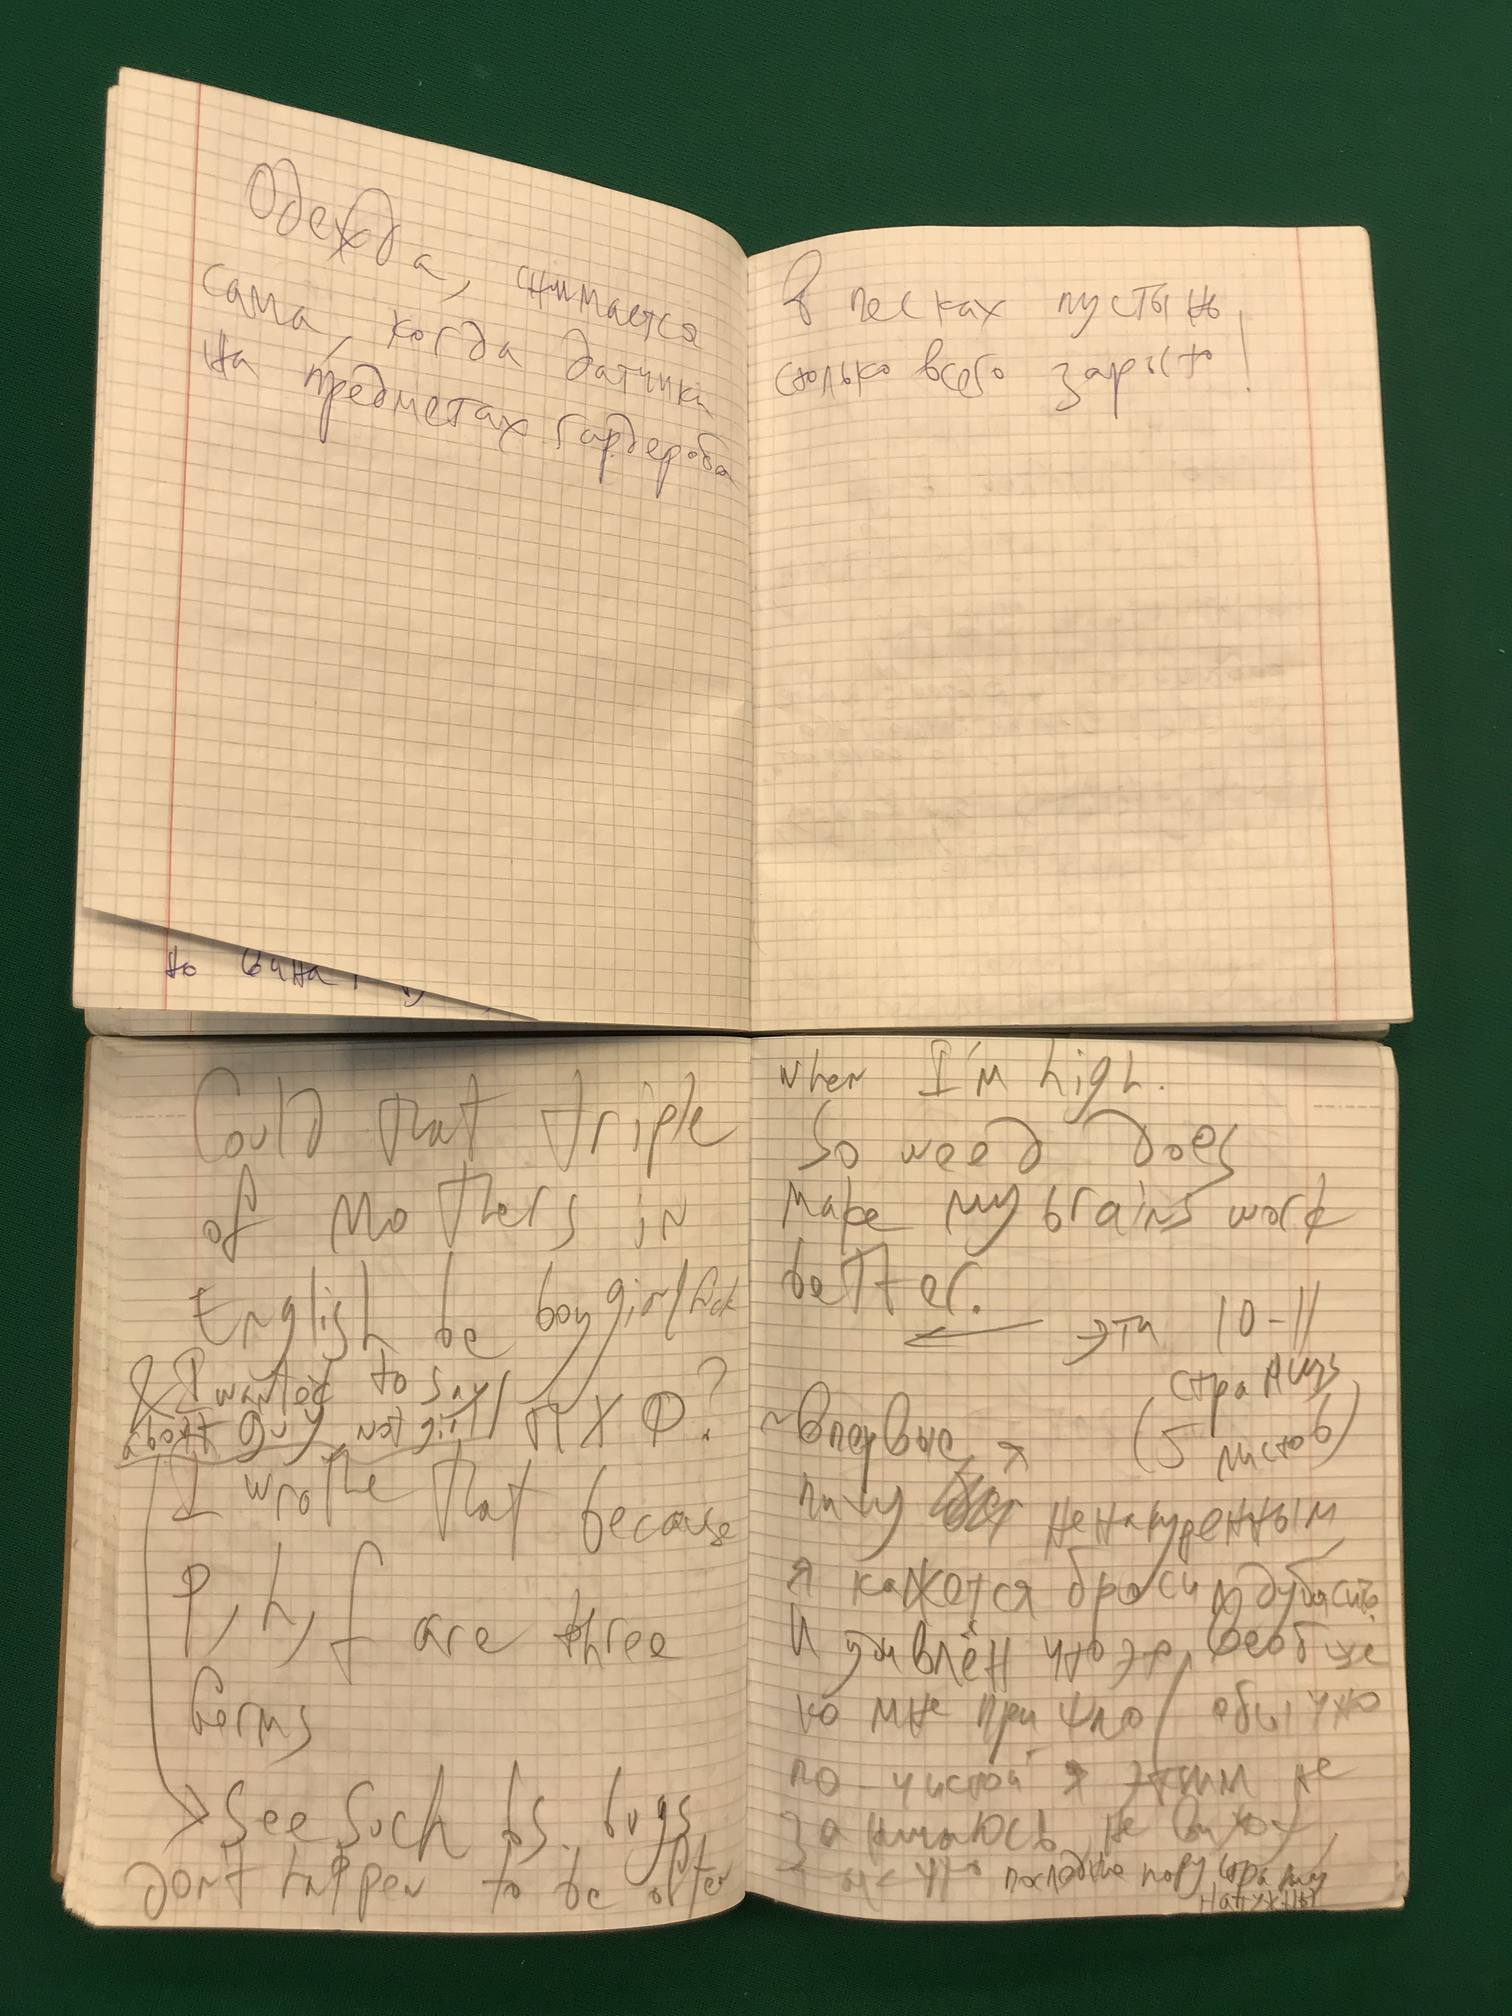 Одежда, снимается
сама, когда датчики
на предметах гардероба
В песках пустынь
сколько всего зарыто!
но
Could that triple
of mothers in
English be boy girl fuck
& I wanted to say
about guy not girl
ПХФ?
I wrothe that because
P, h, f are three
Germs
See such bs. bugs
dont happen to be often
when I'm high.
So weed does
make my brains work
better.
Эти 10-11
страниц
(5 листов)
~Впервые я
пишу ненакуренным,
я кажется бросил дубасить
И удивлён что это вообще
ко мне пришло обычно
по-чистой я этим не
занимаюсь, не
последние пару страниц